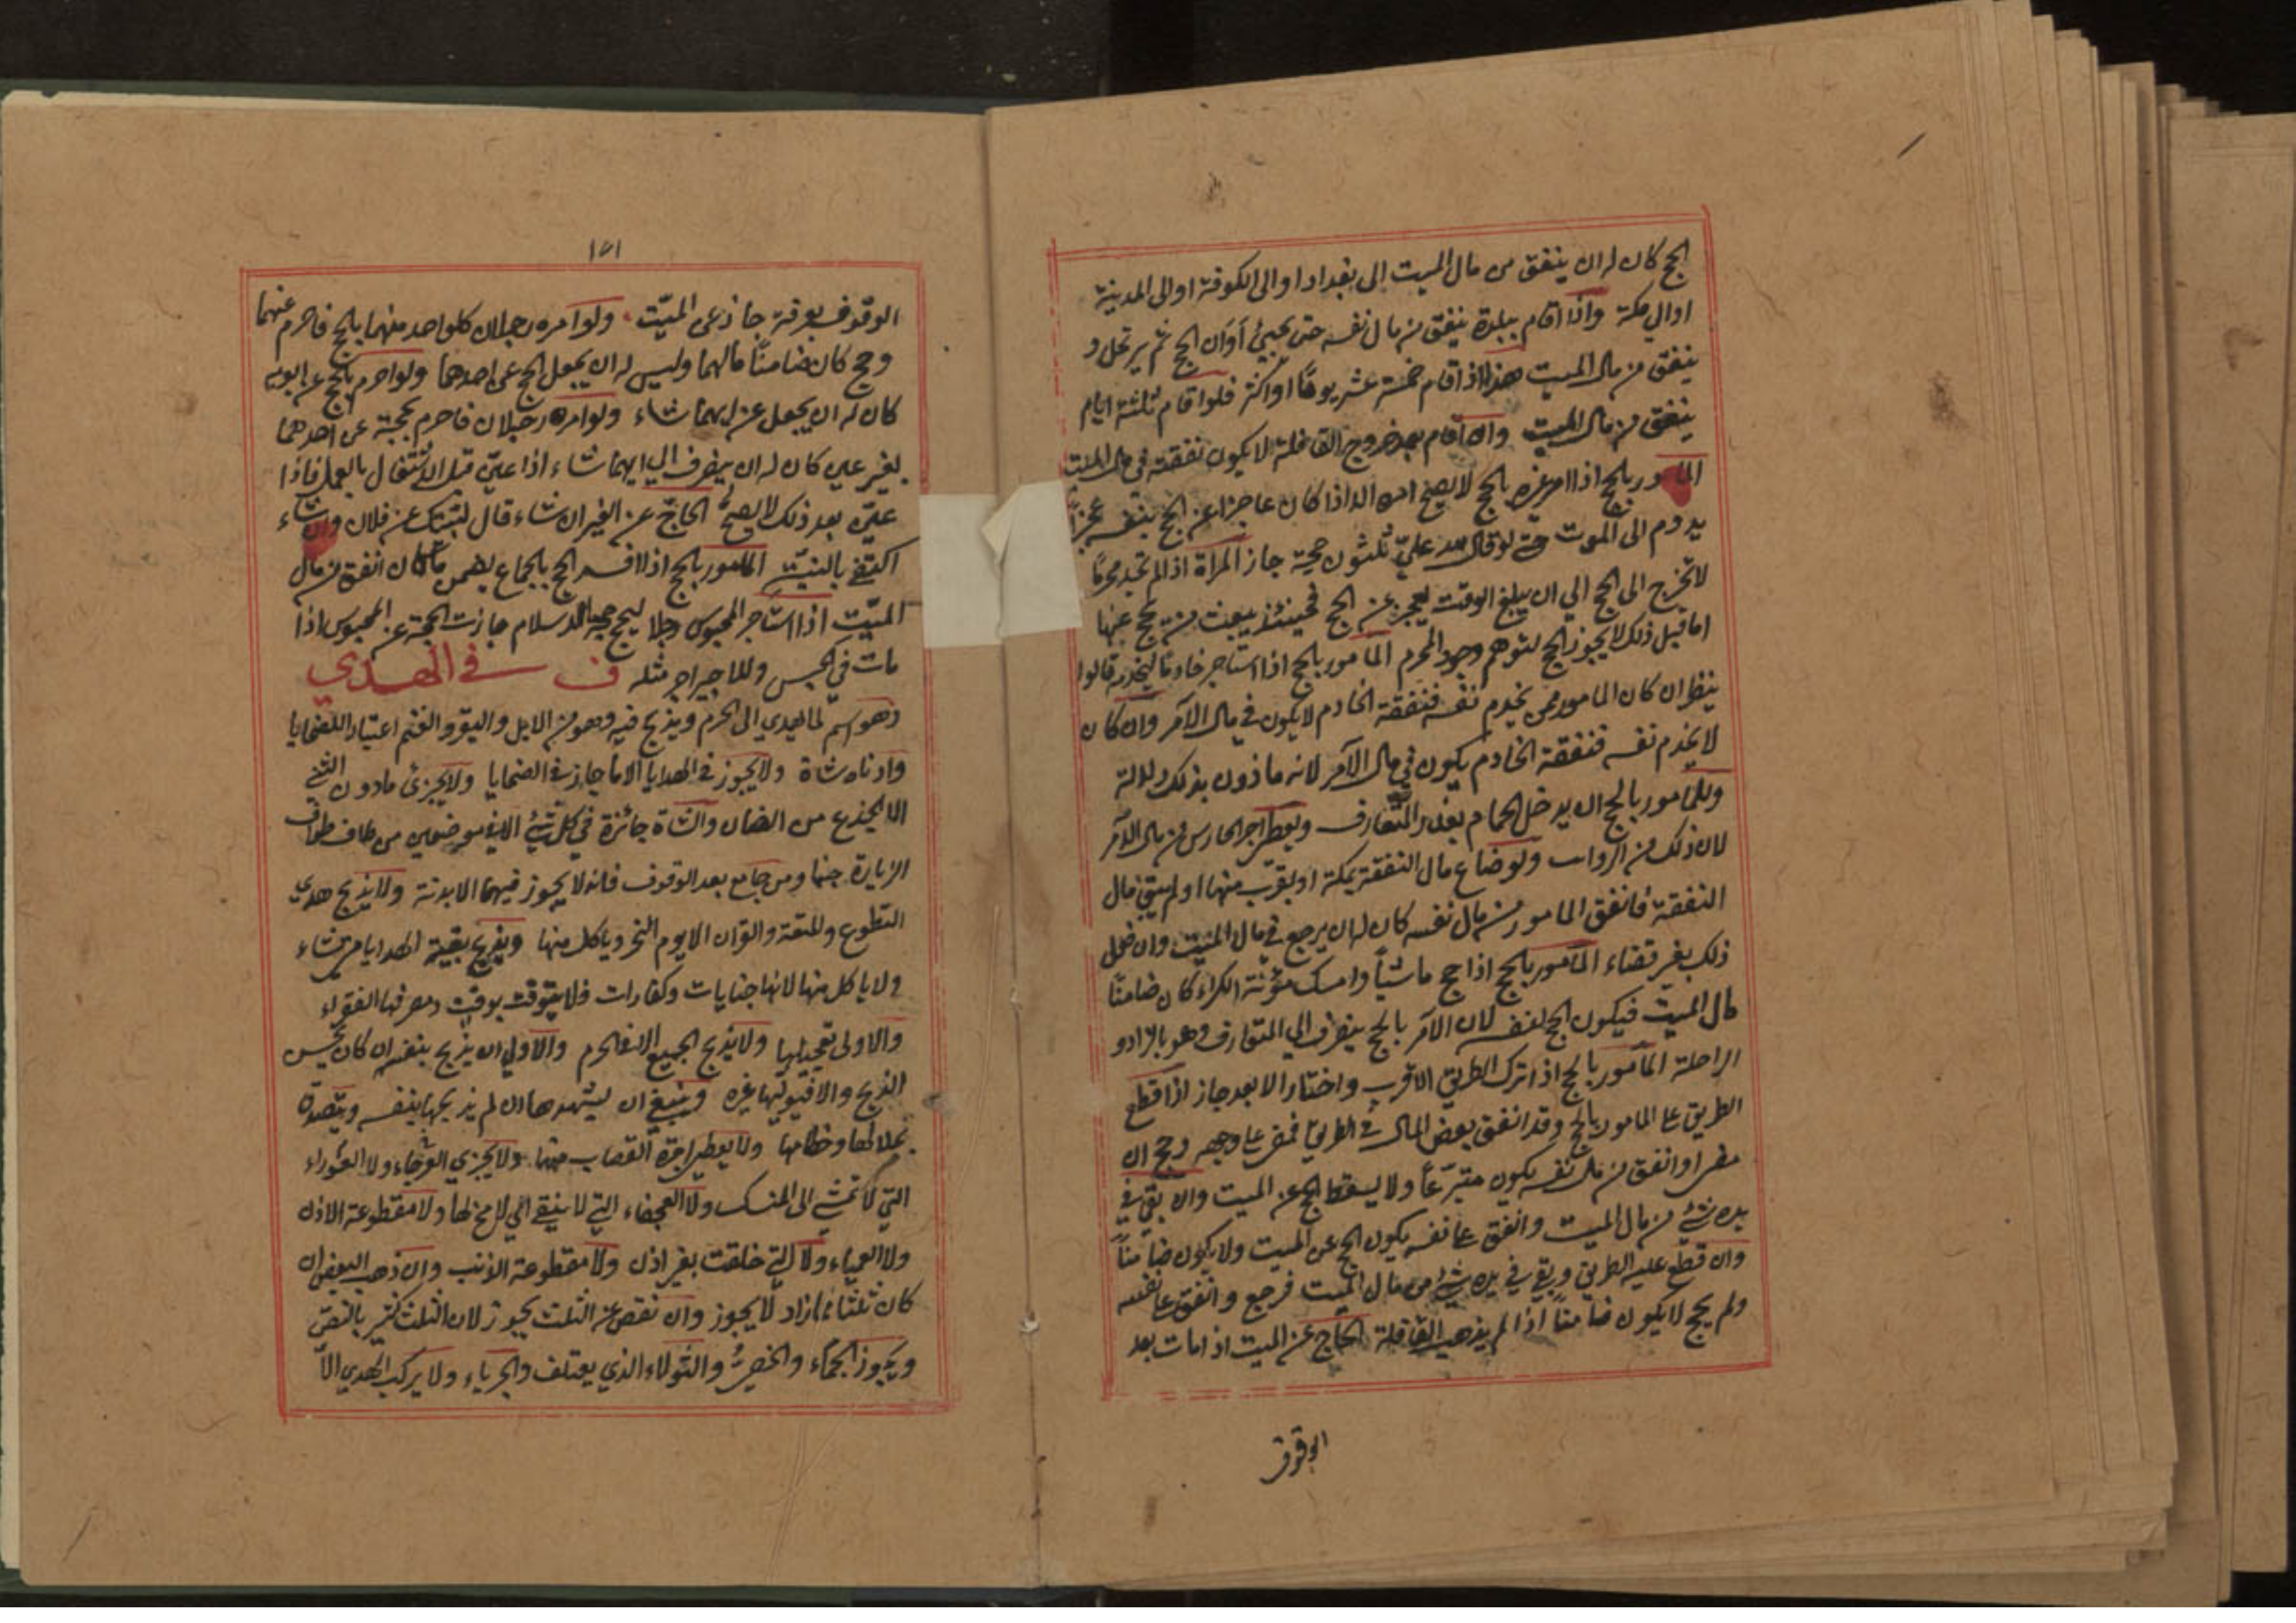 الحج كان له ان ينفق من مال الميت الى بغداد او الى الكوفة او الى المدينة
او الى مكة واذا اقام ببلدة ينفق من مال نفسه حتى يجيئ أوان الحج ثم يرتحل و
ينفق من مال الميت هذا اذا اقام خمسة عشر يوما او اكثر فلو اقام ثلثة ايام
ينفق من مال الميت وان اقام بعد خروج القافلة لا يكون نفقته في مال الميت
المامور بالحج اذا امر غيره بالحج لا يصح امره الا اذا كان عاجزا عن الحج بنفسه عجزاً
يدوم الى الموت حتى لو قال لله عليّ ثلثون حجة جاز المراة اذا لم تجد محرمًا
لا تخرج الى الحج الى ان يبلغ الوقت تعجز عن الحج فحينئذ يبعث من يحج عنها
اما قبل ذلك لا يجوز الحج لتوهم وجود المحرم المامور بالحج اذا استاجر خادما ليخدمه قالوا
ينظر ان كان المامور ممن يخدم نفسه فنفقة الخادم لا يكون في مال الآمر وان كان
لا يخدم نفسه فنفقة الخادم يكون في مال الآمر لانه ماذون بذلك دلالة
وللمامور بالحج ان يدخل الحمام بقدر المتعارف ويعطي اجر الحارس من مال الآمر
لان ذلك من الرواتب ولو ضاع مال النفقة بمكة او بقرب منها او لم يبق مال
النفقة فانفق المامور من مال نفسه كان له ان يرجع في مال الميت وان فعل
ذلك بغير قضاء المامور بالحج اذا حج ماشياً وامسك مؤنة الكراء كان ضامنًا
مال الميت فيكون الحج لنفسه لان الآمر بالحج ينصرف الى المتعارف وهو بالزاد و
الراحلة المامور بالحج اذا ترك الطريق الاقرب واختار الابعد جاز اذا قطع
الطريق على المامور بالحج وقد انفق بعض المال في الطريق فمضى على وجهه وحج ان
مضى او انفق من مال نفسه يكون متبرّعاً ولا يسقط الحج عن الميت وان بقي في
يده شئ من مال الميت وانفق على نفسه يكون الحج عن الميت ولا يكون ضامناً
وان قطع عليه الطريق وبقي في يده شئ من مال الميت فرجع وانفق على نفسه
ولم يحج لا يكون ضامناً اذا لم يذهب القافلة الحاج عن الميت اذا مات بعد
الوقوف
١٤١
الوقوف بعرفة جاز عن الميّت ولو امره رجلان كلواحد منهما بالحج فاحرم عنهما
وحج كان ضامنًا مالهما وليس له ان يجعل الحج عن احدهما ولو احرم بالحج عن ابويه
كان له ان يجعل عن ايهما شاء ولو امره رجلان فاحرم بحجة عن احدهما
بغير عين كان له ان يصرف الى ايهما شاء اذا عيّن قبل الاشتغال بالعمل فاذا
عيّن بعد ذلك لا يصح الحاج عن الغير ان شاء قال لبّيك عن فلان وان شاء
اكتفى بالنية المامور بالحج اذا افسد الحج بالجماع يضمن ما كان انفق من مال
الميّت اذا استاجر المحبوس رجلا ليحج حجة الاسلام جازت الحجة عن المحبوس اذا
مات في الحبس وللاجير اجر مثله ف في الهدي
وهو اسم لما يهدي الى الحرم ويذبح فيه وهو من الابل والبقر والغنم اعتبارا للضحايا
وادناه شاة ولا يجوز في الهدايا الا ما جاز في الضحايا ولا يجزئ ما دون الثني
الا الجذع من الضان والشاة جائزة في كل شئ الا في موضعين من طاف طواف
الزيارة جنبا ومن جامع بعد الوقوف فانه لا يجوز فيهما الا بدنة ولا يذبح هدي
التطوع والمتعة والقران الا يوم النحر وياكل منها ويذبح بقية الهدايا متى شاء
ولا ياكل منها لانها جنايات وكفارات فلا يتوقت بوقت ومصرفها الفقراء
والاولى تعجيلها ولا يذبح الجميع الا في الحرم والاولى ان يذبح بنفسه ان كان يحسن
الذبح والا فيوليها غيره وينبغي ان يشهدها ان لم يذبحها بنفسه ويتصدق
بجلالها وخطامها ولا يعطي اجرة القصاب منها ولا يجزي العرجاء ولا العوراء
التي لا تمشي الى المنسك ولا العجفاء التي لا ينقي اي لا مخ لها ولا مقطوعة الاذن
ولا العمياء ولا التي خلقت بغير اذن ولا مقطوعة الذنب وان ذهب البعض ان
كان ثلثا فما زاد لا يجوز وان نقص عن الثلث يجوز لان الثلث كثير بالنص
ويجوز الجماء والخصي والثولاء الذي يعتلف والجرباء ولا يركب الهدي الا